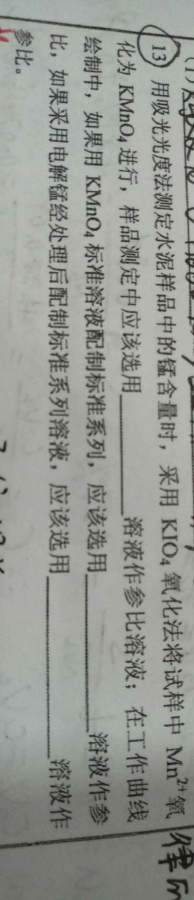 13 用吸光光度法测定水泥样品中的锰含量时，采用 KIO₄ 氧化法将试样中 Mn²⁺ 氧
化为 KMnO₄ 进行，样品测定中应该选用________溶液作参比溶液；在工作曲线
绘制中，如果用 KMnO₄ 标准溶液配制标准系列，应该选用________溶液作参
比，如果采用电解锰经处理后配制标准系列溶液，应该选用________溶液作
参比。